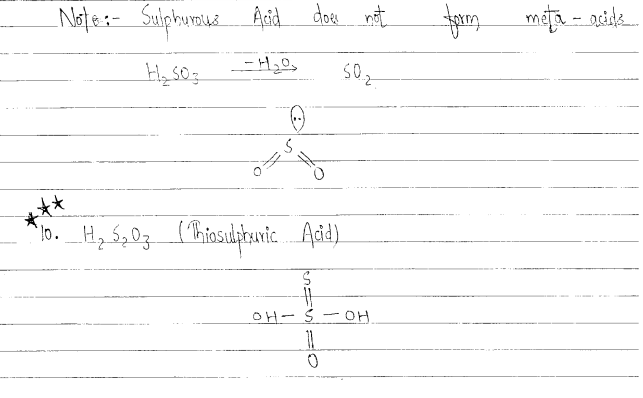 Note:- Sulphurous Acid does not form meta-acids
H₂SO₃ —H₂O→ SO₂
S
O O
10. H₂S₂O₃ (Thiosulphuric Acid)
S
OH — S — OH
O